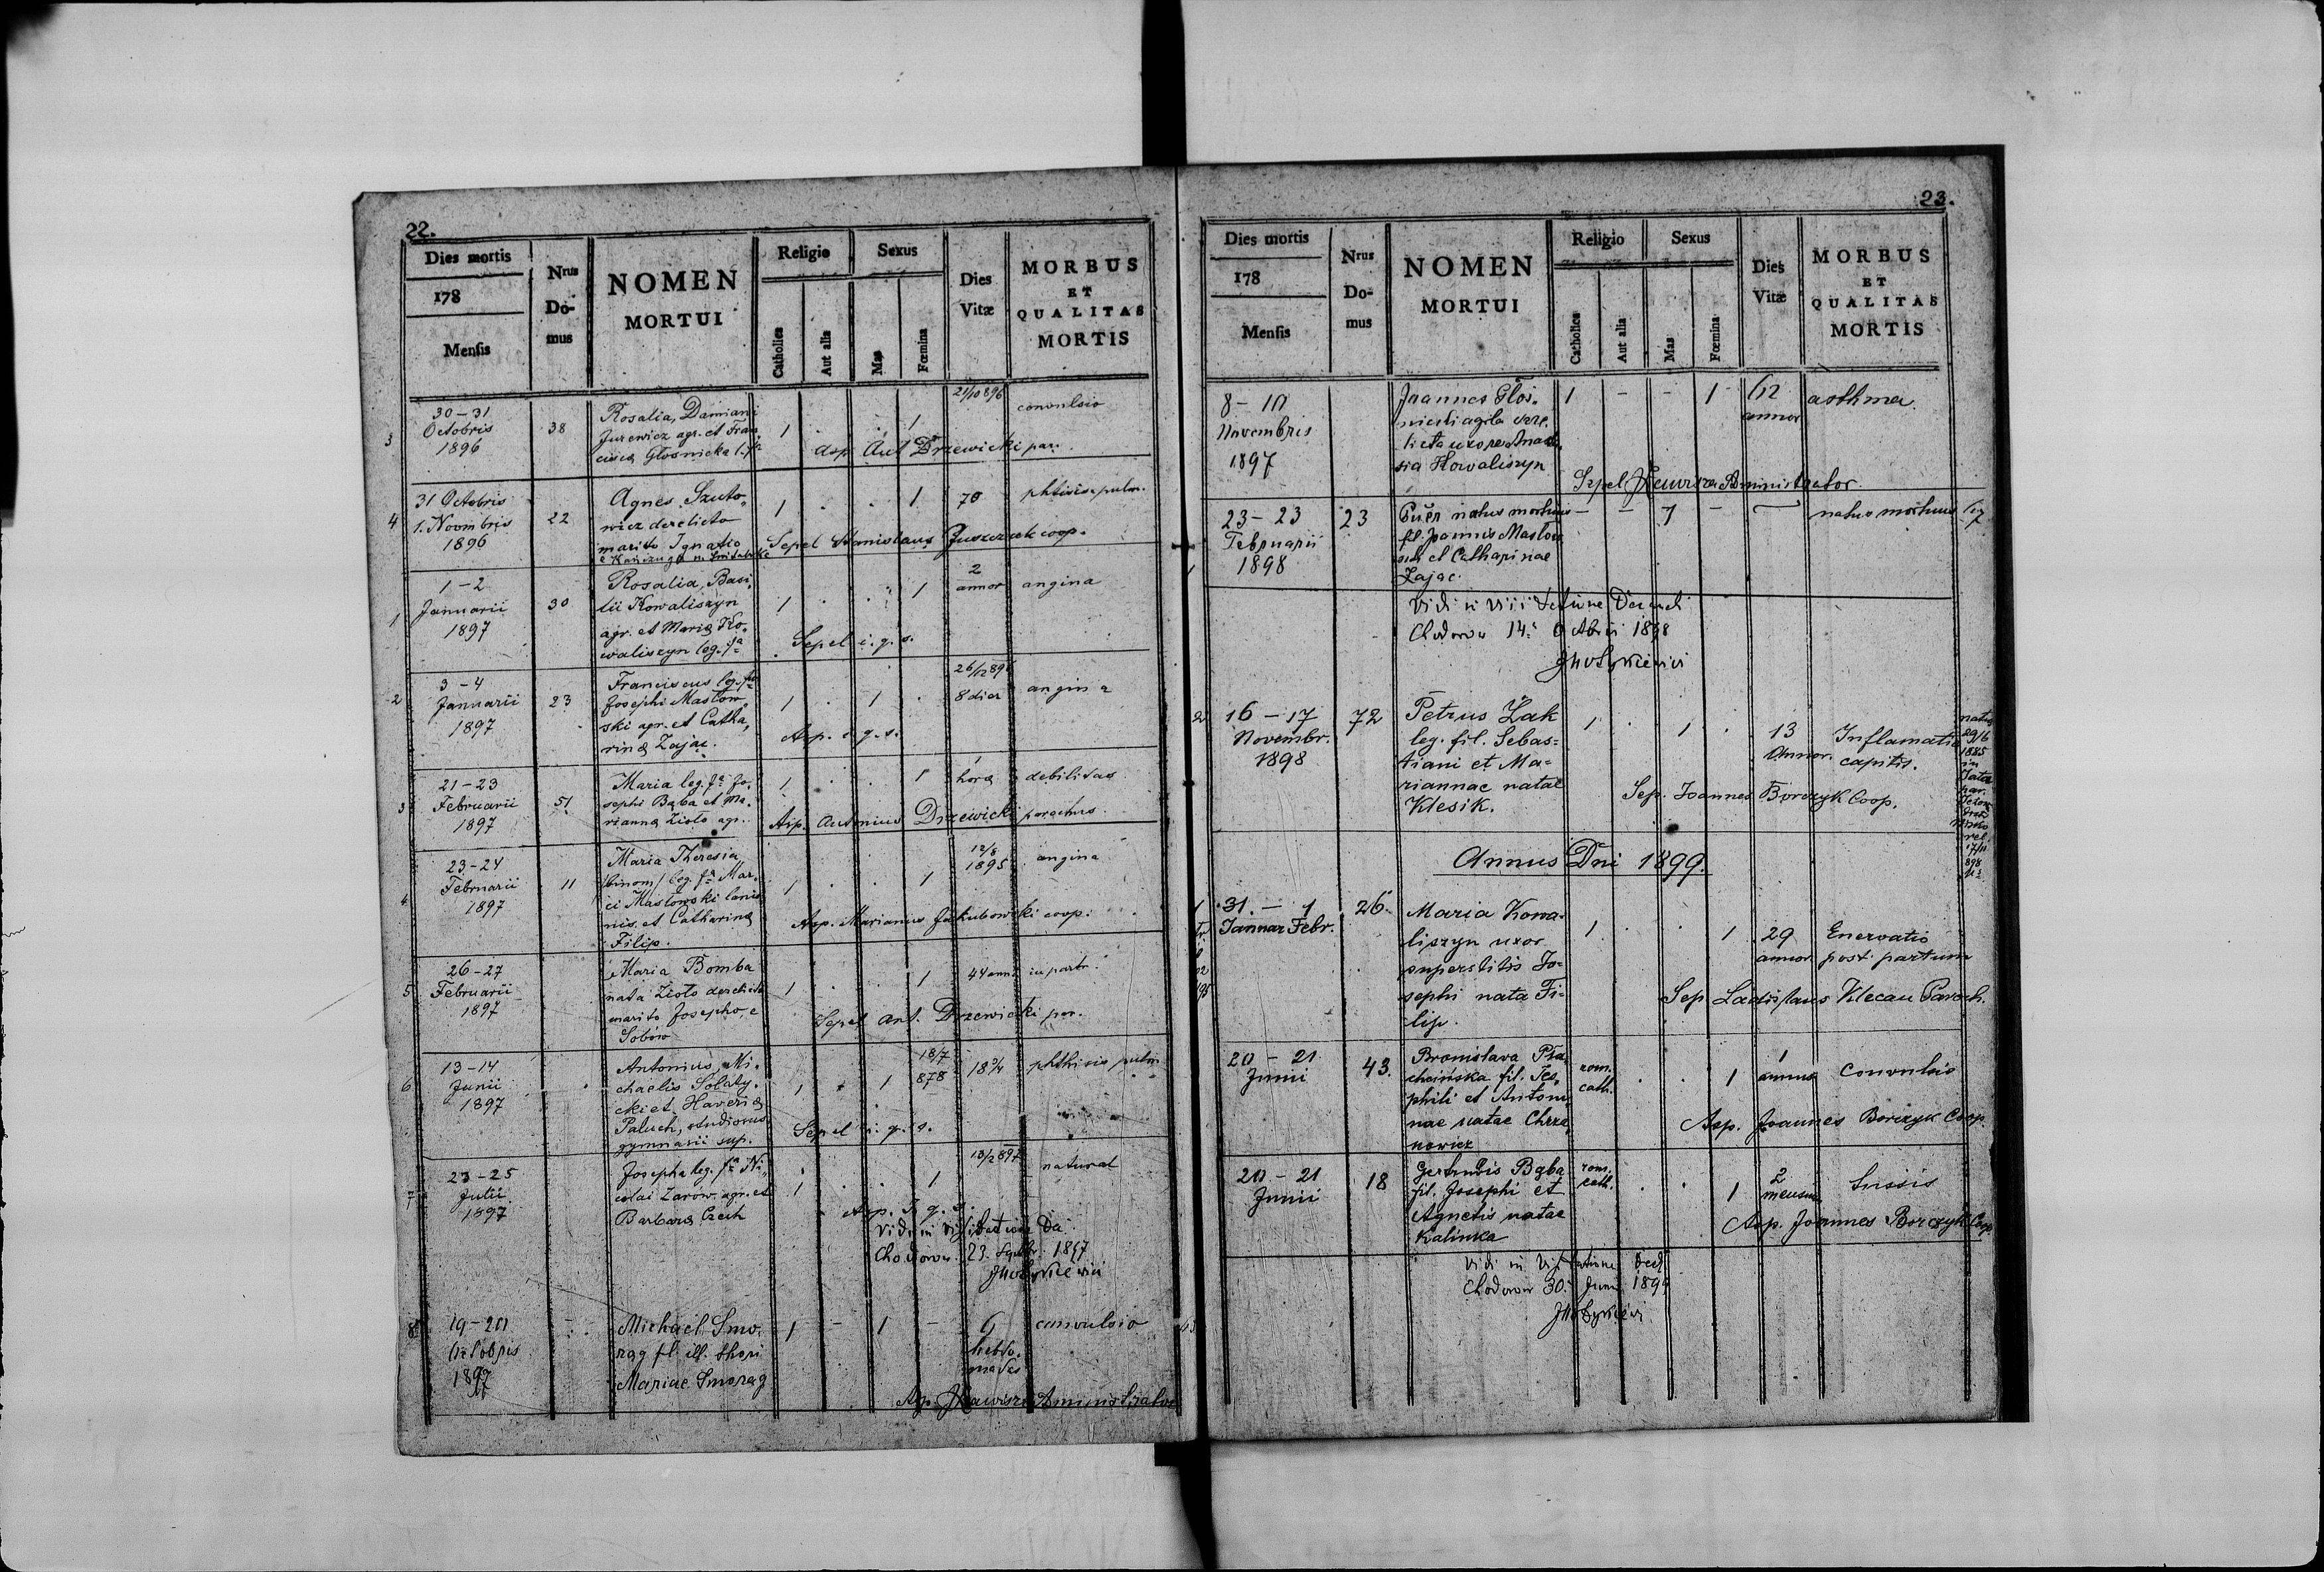 22.
Dies mortis
178
Mensis
Nrus
Do-
mus
NOMEN
MORTUI
Religio
Catholica
Aut alia
Sexus
Mas
Fœmina
Dies
Vitæ
MORBUS
ET
QUALITAS
MORTIS
3
30-31
Octobris
1896
38
Rosalia, Damiani
Jurewicz agr. et Fran
cisca Głosnicka l. fa
1
1
21/10 896
convulsio
Asp Ant Drzewicki par.
4
31 Octobris
1. Novmbris
1896
22
Agnes Szuto-
wicz derelicta
marito Ignatio
1
1
70
phtisis pulm.
Sepel Stanislaus Juszczak coop.
1
1-2
Januarii
1897
30
Rosalia, Basi-
lii Kowaliszyn
agr. et Maria Ko-
waliszyn leg. fa
1
1
2
annor
angina
Sepel i. q. s.
2
3-4
Januarii
1897
23
Franciscus leg. f
Josephi Masłow-
ski agr. et Catha,
rina Zając.
1
1
26/12 896
8 dier
angina
Asp. i q. s.
3
21-23
Februarii
1897
51
Maria leg. fa Jo-
sephi Bąba et Ma-
rianna Zioło agr.
1
1
1
hora
debilitas
Asp. Antonius Drzewicki parochus
4
23-24
Februarii
1897
11
Maria Theresia
/binom/ leg. fa Mar-
ci Masłowski lanio
nis et Catharina
Filip.
1
1
12/8
1895
angina
Asp. Marianus Jakubowski coop.
5
26-27
Februarii
1897
Maria Bomba
nata Zioło derelicta
marito Josepho, e
Sobów
1
1
44 ann.
in partu.
Sepel Ant. Drzewicki par.
6
13-14
Junii
1897
Antonius, Mi-
chaelis Sołtty-
cki et Xaveria
Paluch, studiosus
gymnasii sup.
1
1
18/7
878
18 3/4
phthisis pulm
Sepel i. q. s.
7
23-25
Julii
1897
Josepha leg. fa Ni-
colai Żarów. agr. et
Barbara Czech
1
1
13/2 897
natural
Asp. I. q. s.
Vidi in visitatione Da
Chodorow 23. Septbr. 1897
8
19-20
Octobris
1897
Michael Smo-
rąg fl. ill. thori
Mariae Smorąg
1
1
6
hebdo-
mades
convulsio
Asp. Administrator
23.
Dies mortis
178
Mensis
Nrus
Do-
mus
NOMEN
MORTUI
Religio
Catholica
Aut alia
Sexus
Mas
Fœmina
Dies
Vitæ
MORBUS
ET
QUALITAS
MORTIS
8-10
Novembris
1897
Joannes Głos-
derelicta uxore Anasta
sia Kowaliszyn
1
1
62
annor
asthma.
Sepel Administrator.
1
23-23
Februarii
1898
23
Puer natus mortuus
fil. Joannis Masłow
ski et Catharinae
Zając.
1
natus mortuus
Vidi in Visitatione Decanali
Chodorow 14. Octobris 1898
2
16-17
Novembr.
1898
72
Petrus Żak
leg. fil. Sebas=
tiani et Ma=
riannae natae
Klesik.
1
1
13
Annor.
Inflamatio
capitis.
natus
29/6
1885
in
Sep. Joannes Borczyk Coop.
Annus Dni 1899.
1
31.-1
Januar Febr.
26.
Maria Kowa-
liszyn uxor
superstitis Jo=
sephi nata Fi-
lip.
1
1
29
annor.
Enervatio
post partum
Sep Ladislaus Klecan Paroch.
20-21
Junii
43.
Bronislava Pła-
cheińska fil. Teo-
phili et Anton
nae natae Chrza
nowicz
rom.
cath.
1
1
annus
Convulsio
Asp. Joannes Borczyk Coop.
20-21
Junii
18
Gertrudis Bąba
fil. Josephi et
Agnetis natae
Kalinka
rom.
cath.
1
2
mensium
tussis
Asp. Joannes Borczyk Coop.
Vidi in Visitatione Decli
Chodorow 30. Junii 1899